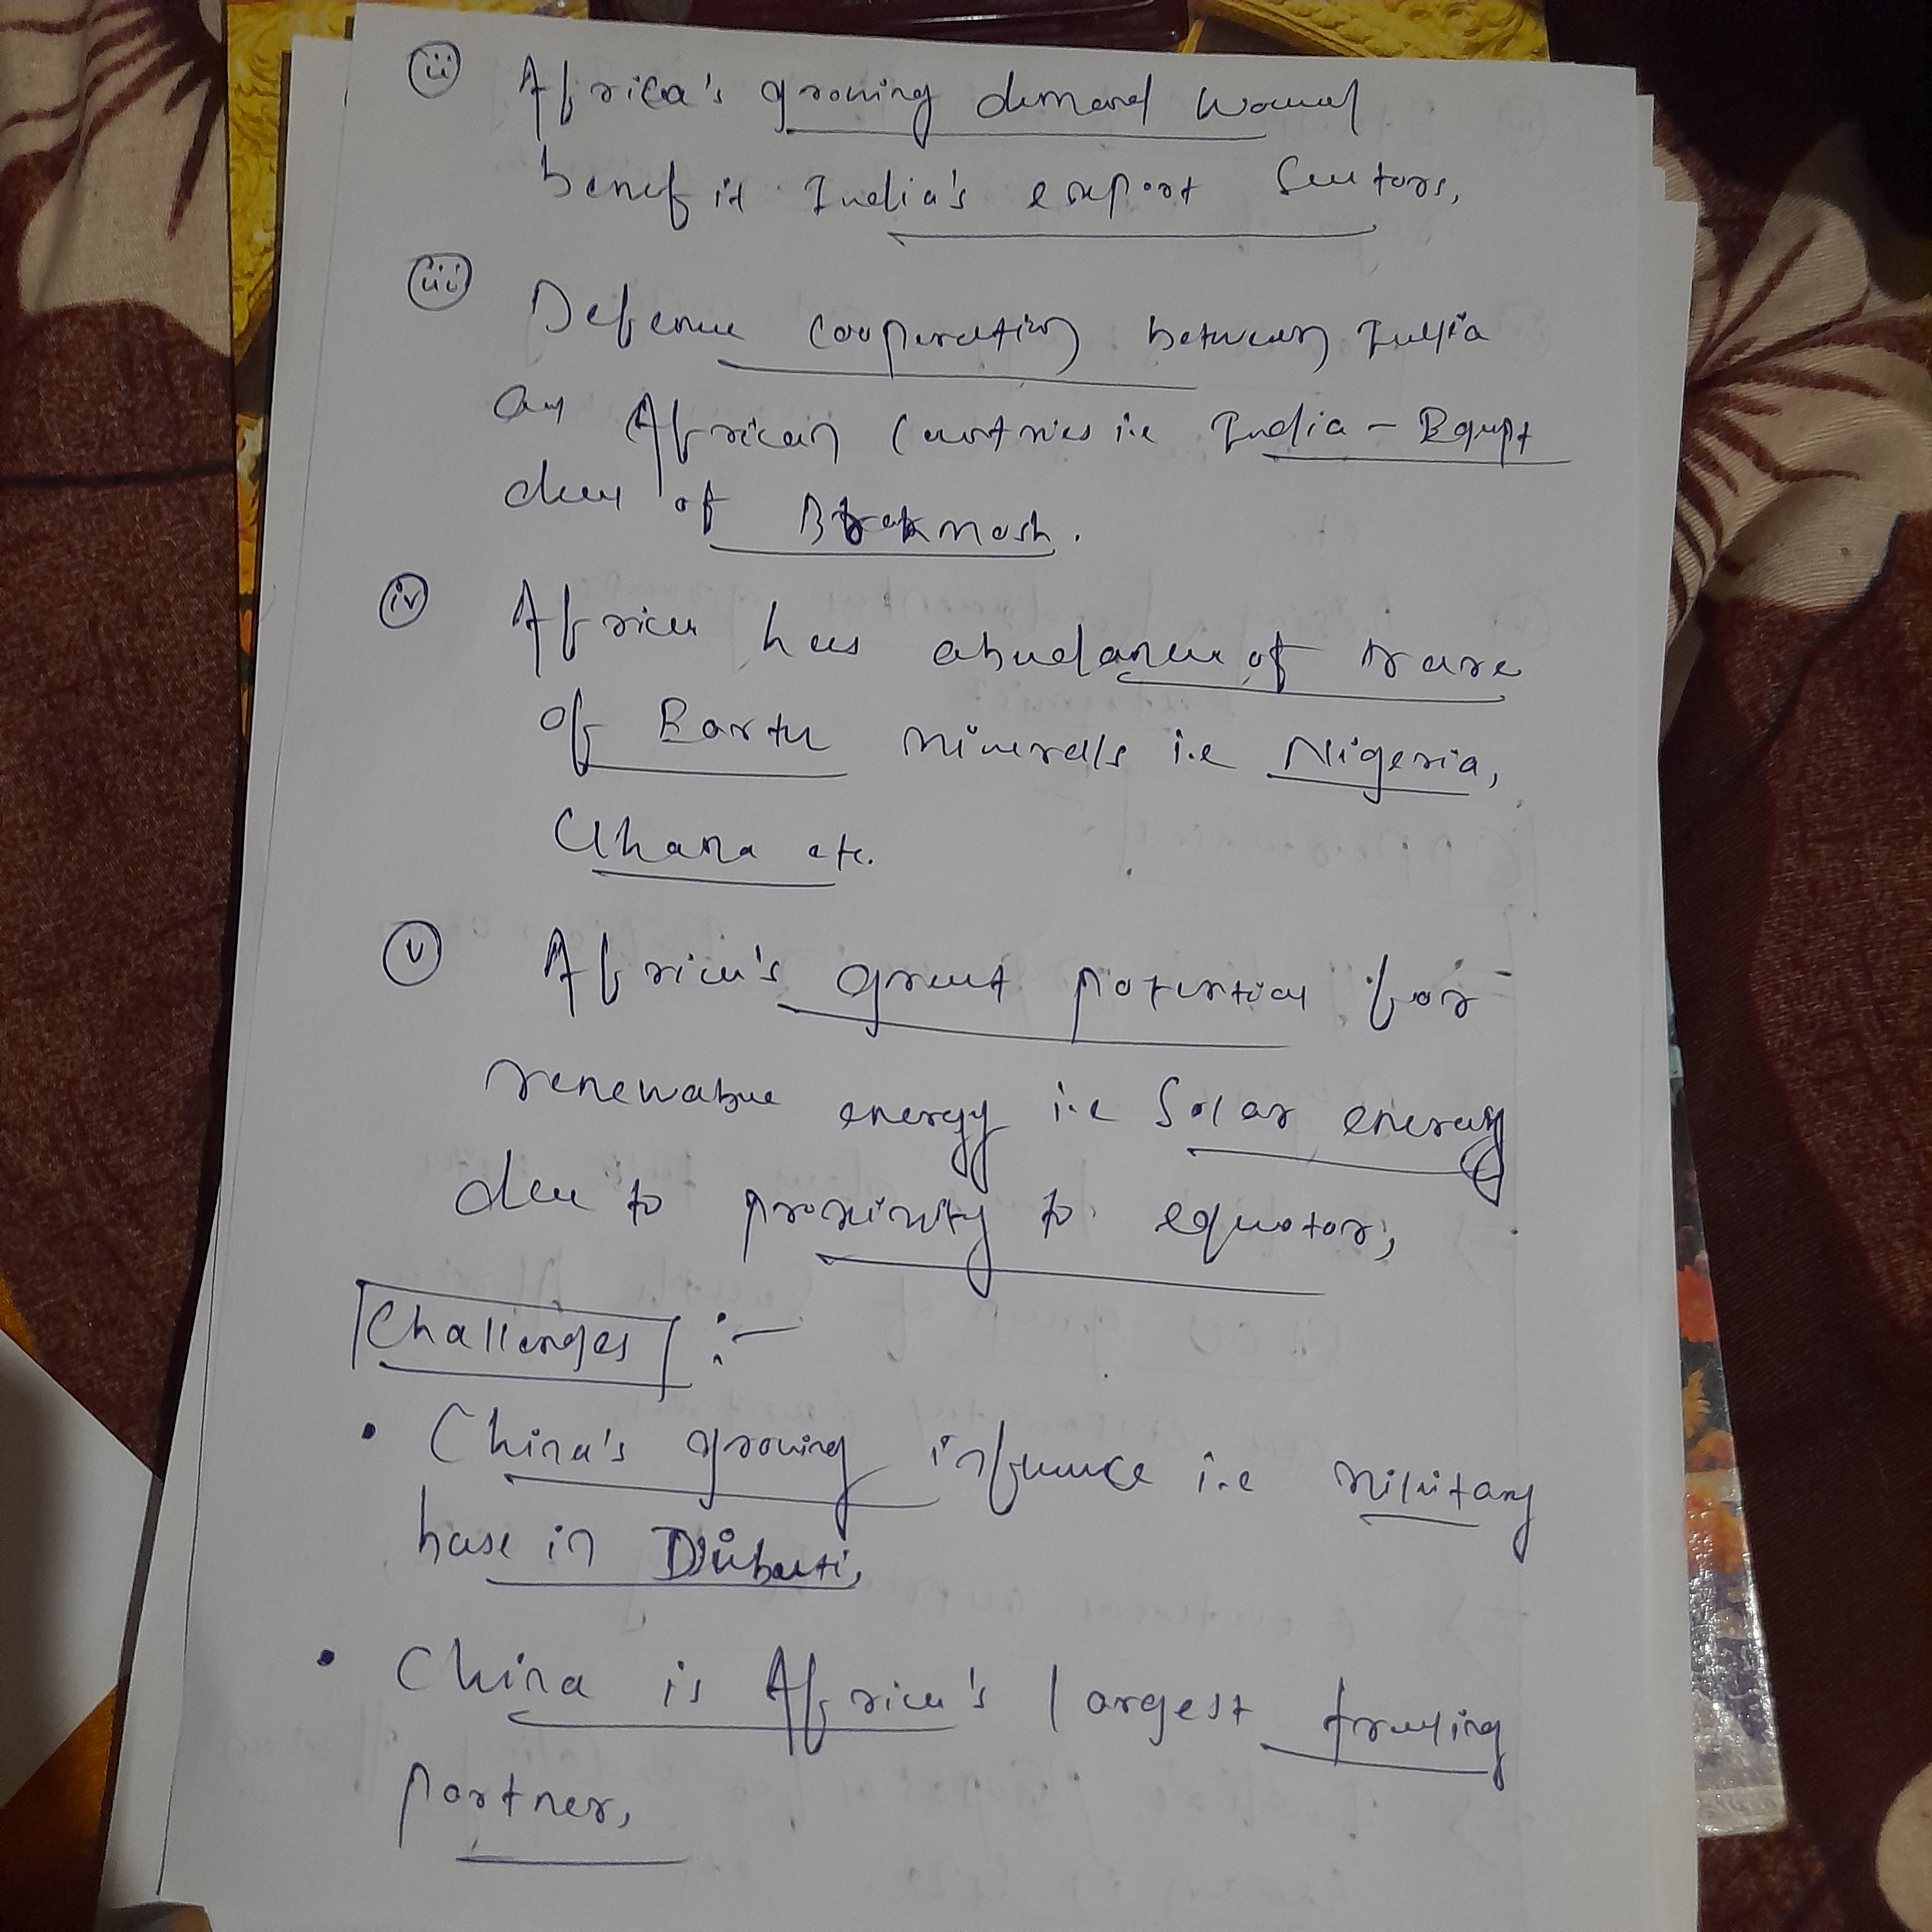 (ii) Africa's growing demand would
benefit India's export sectors,
(iii) Defence cooperation between India
an African Countries i.e India - Egypt
deal of Brahmosh.
(iv) Africa has abudance of rare
of Earth minerals i.e Nigeria,
Ghana etc.
(v) Africa's great potential for
renewable energy i.e Solar energy
due to proximity to equator,
Challenges :-
• China's growing influence i.e military
base in Djibouti,
• China is Africa's largest trading
partner,